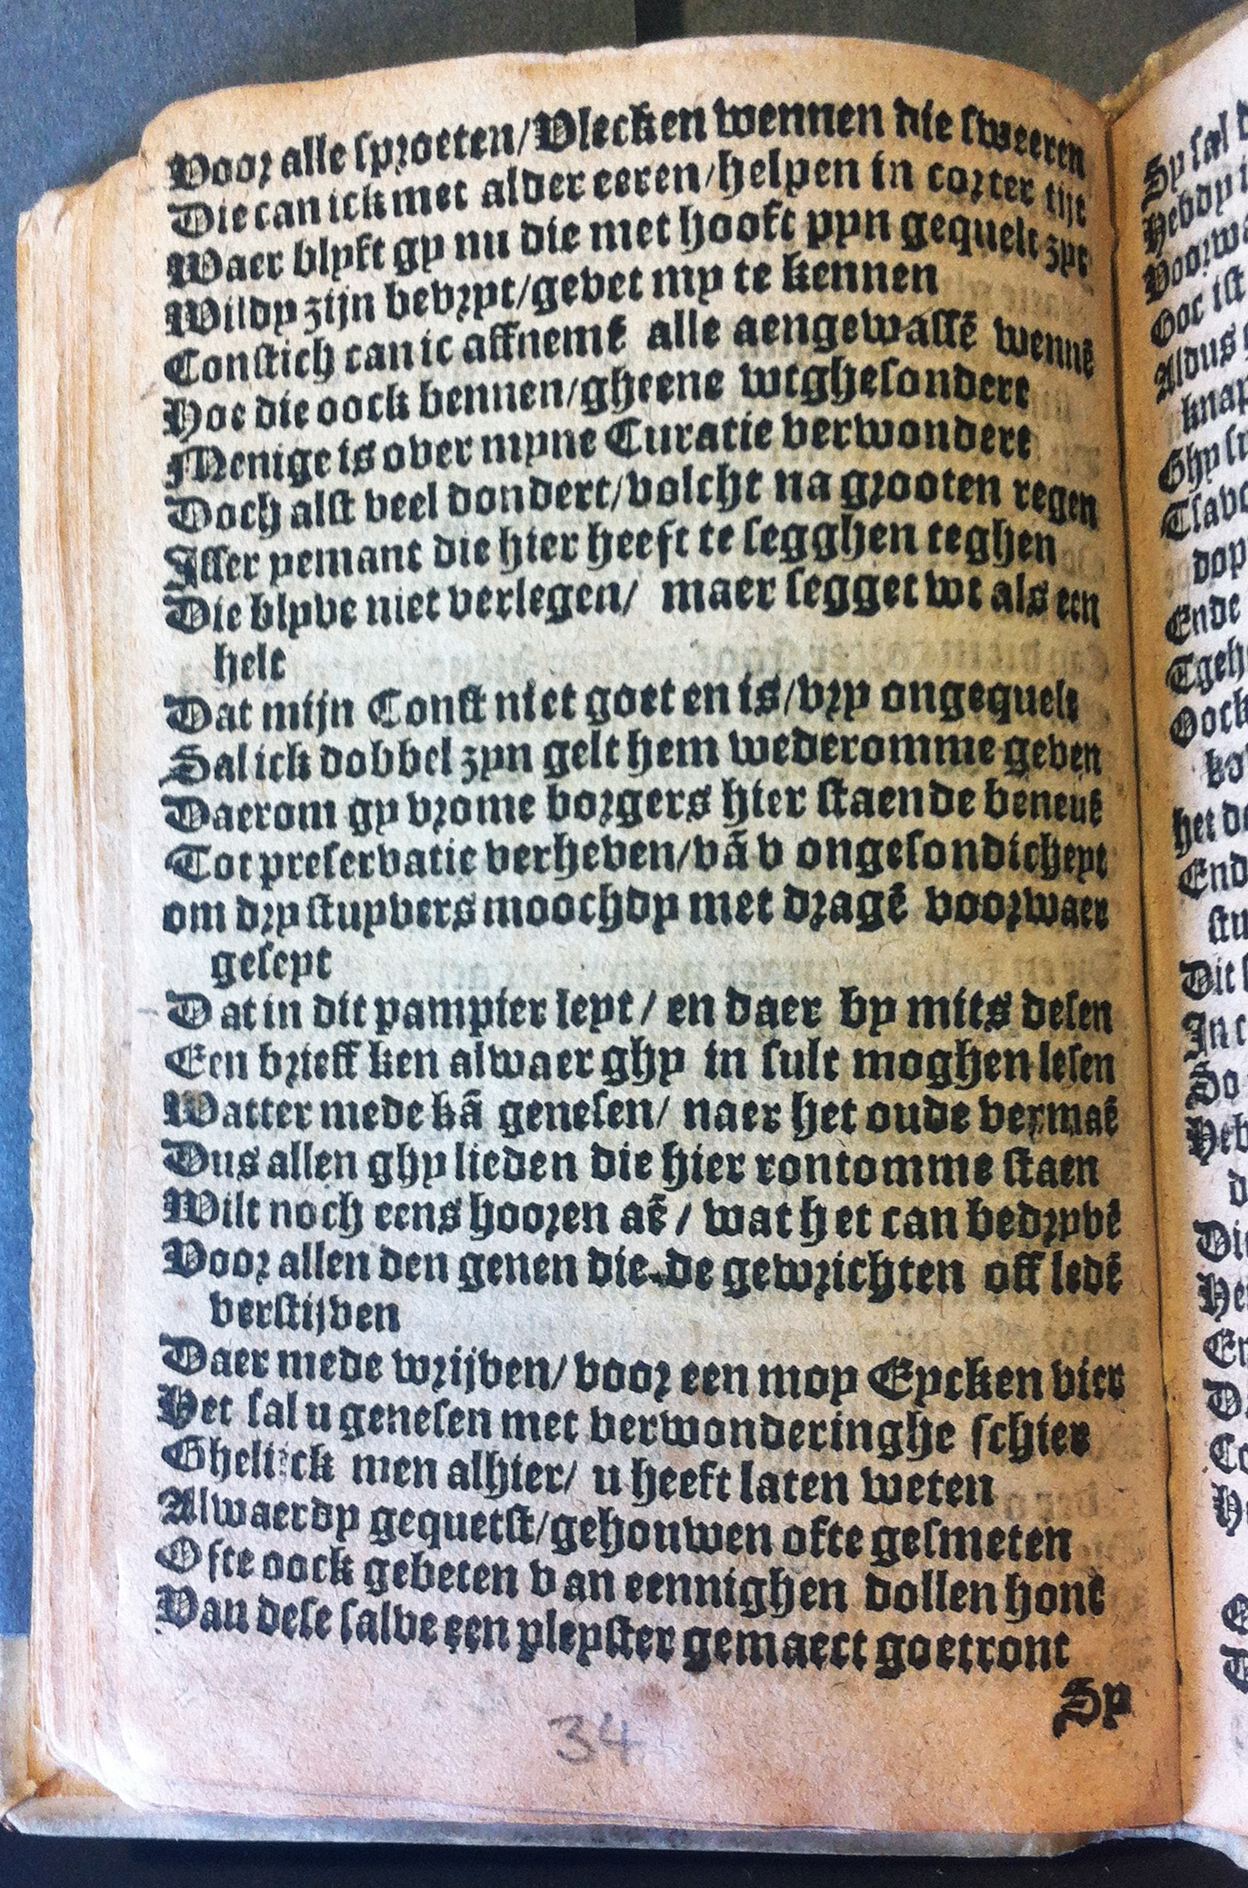 Voor alle sproeten/Vlecken wennen die sweeren
Die can ick met alder eeren/helpen in corter tijt
Waer blyft gy nu die met hooft pyn gequelt zyt
Wildy zijn bevryt/gevet my te kennen
Constich can ic affnemē alle aengewassē wennē
Hoe die oock bennen/gheene wtghesondert
Menige is over myne Curatie verwondert
Doch alst veel dondert/volcht na grooten regen
Isser yemant die hier heeft te segghen teghen
Die blyve niet verlegen/ maer segget wt als een
helt
Dat mijn Const niet goet en is/vry ongequelt
Sal ick dobbel zyn gelt hem wederomme geven
Daerom gy vrome borgers hier staende benevē
Tot preservatie verheven/vā v ongesondicheyt
om dry stuyvers moochdy met dragē voorwaer
geseyt
Dat in dit pampier leyt/ en daer by mits desen
Een brieff ken alwaer ghy in sult moghen lesen
Watter mede kā genesen/ naer het oude vermaē
Dus allen ghy lieden die hier rontomme staen
Wilt noch eens hooren aē/ wat het can bedryvē
Voor allen den genen die de gewrichten off ledē
verstijven
Daer mede wrijven/voor een moy Eycken vier
Het sal u genesen met verwonderinghe schier
Ghelijck men alhier/ u heeft laten weten
Alwaerdy gequetst/gehouwen ofte gesmeten
Ofte oock gebeten van eennighen dollen hont
Van dese salve een pleyster gemaect goet ront
Sy
34
Sy sal
Hebdy
Ooc ist
Aldus
Ende
Oock
het
Dit
In
So